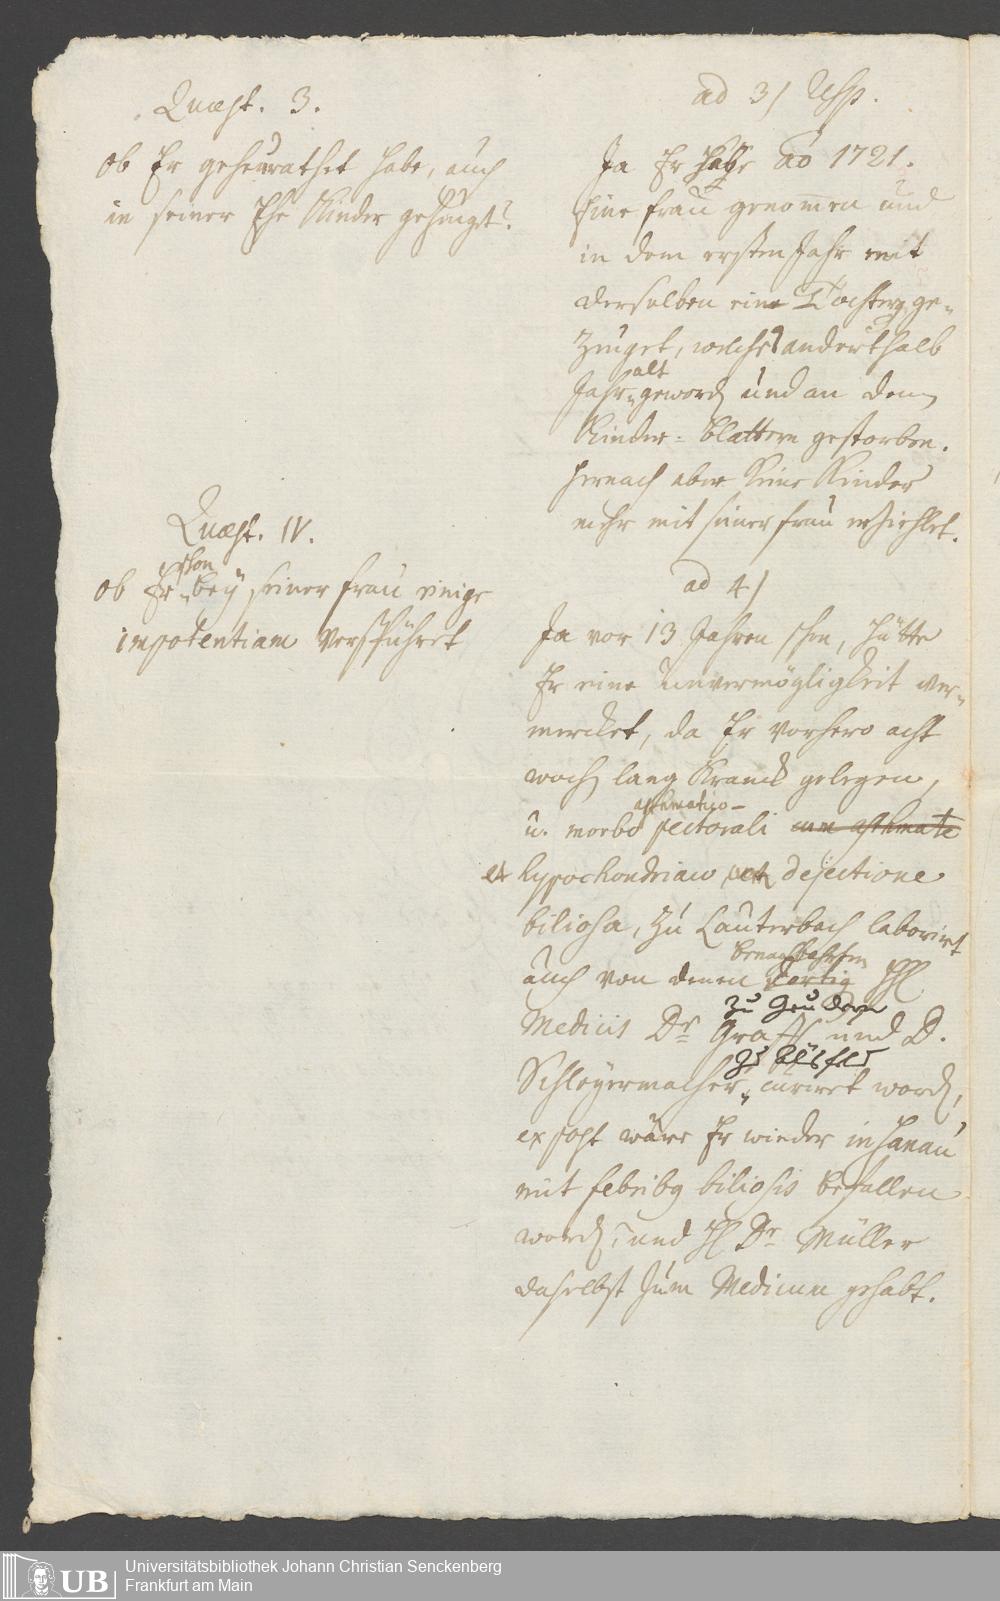 Quæst. 3.
ob Er geheurathet habe, auch
in seiner Ehe Kinder gezeugt?
ad 3) Resp.
Ja Er habe ao 1721.
Eine frau genommen und
in dem ersten Jahr mit
derselben eine Tochter ge-
zeuget, welche anderthalb
Jahr alt geword und an den
Kinder-blattern gestorben.
hernach aber keine Kinder
mehr mit seiner frau erziehlet.
Quæst. IV.
ob Er schon bey seiner frau einige
impotentiam verspühret
ad 4)
Ja vor 13 Jahren schon, hätte
Er eine Unvermögligkeit ver-
mercket, da Er vorhero acht
woch lang Kranck gelegen,
u. morbo asthmatico-pectorali cum asthmate
et hypochondriaco dejectione
biliosa, zu Lauterbach laborirt
auch von denen benachbahrten dortig HH.
Medicis Dr Graff zu Geudern und D.
Schleyermacher zu Alsfeld curiret word,
ex post wäre Er wieder in Hanau
mit febribg biliosis befallen
word, und H Dr Müller
daselbst zum Medicum gehabt.
UB
Universitätsbibliothek Johann Christian Senckenberg
Frankfurt am Main